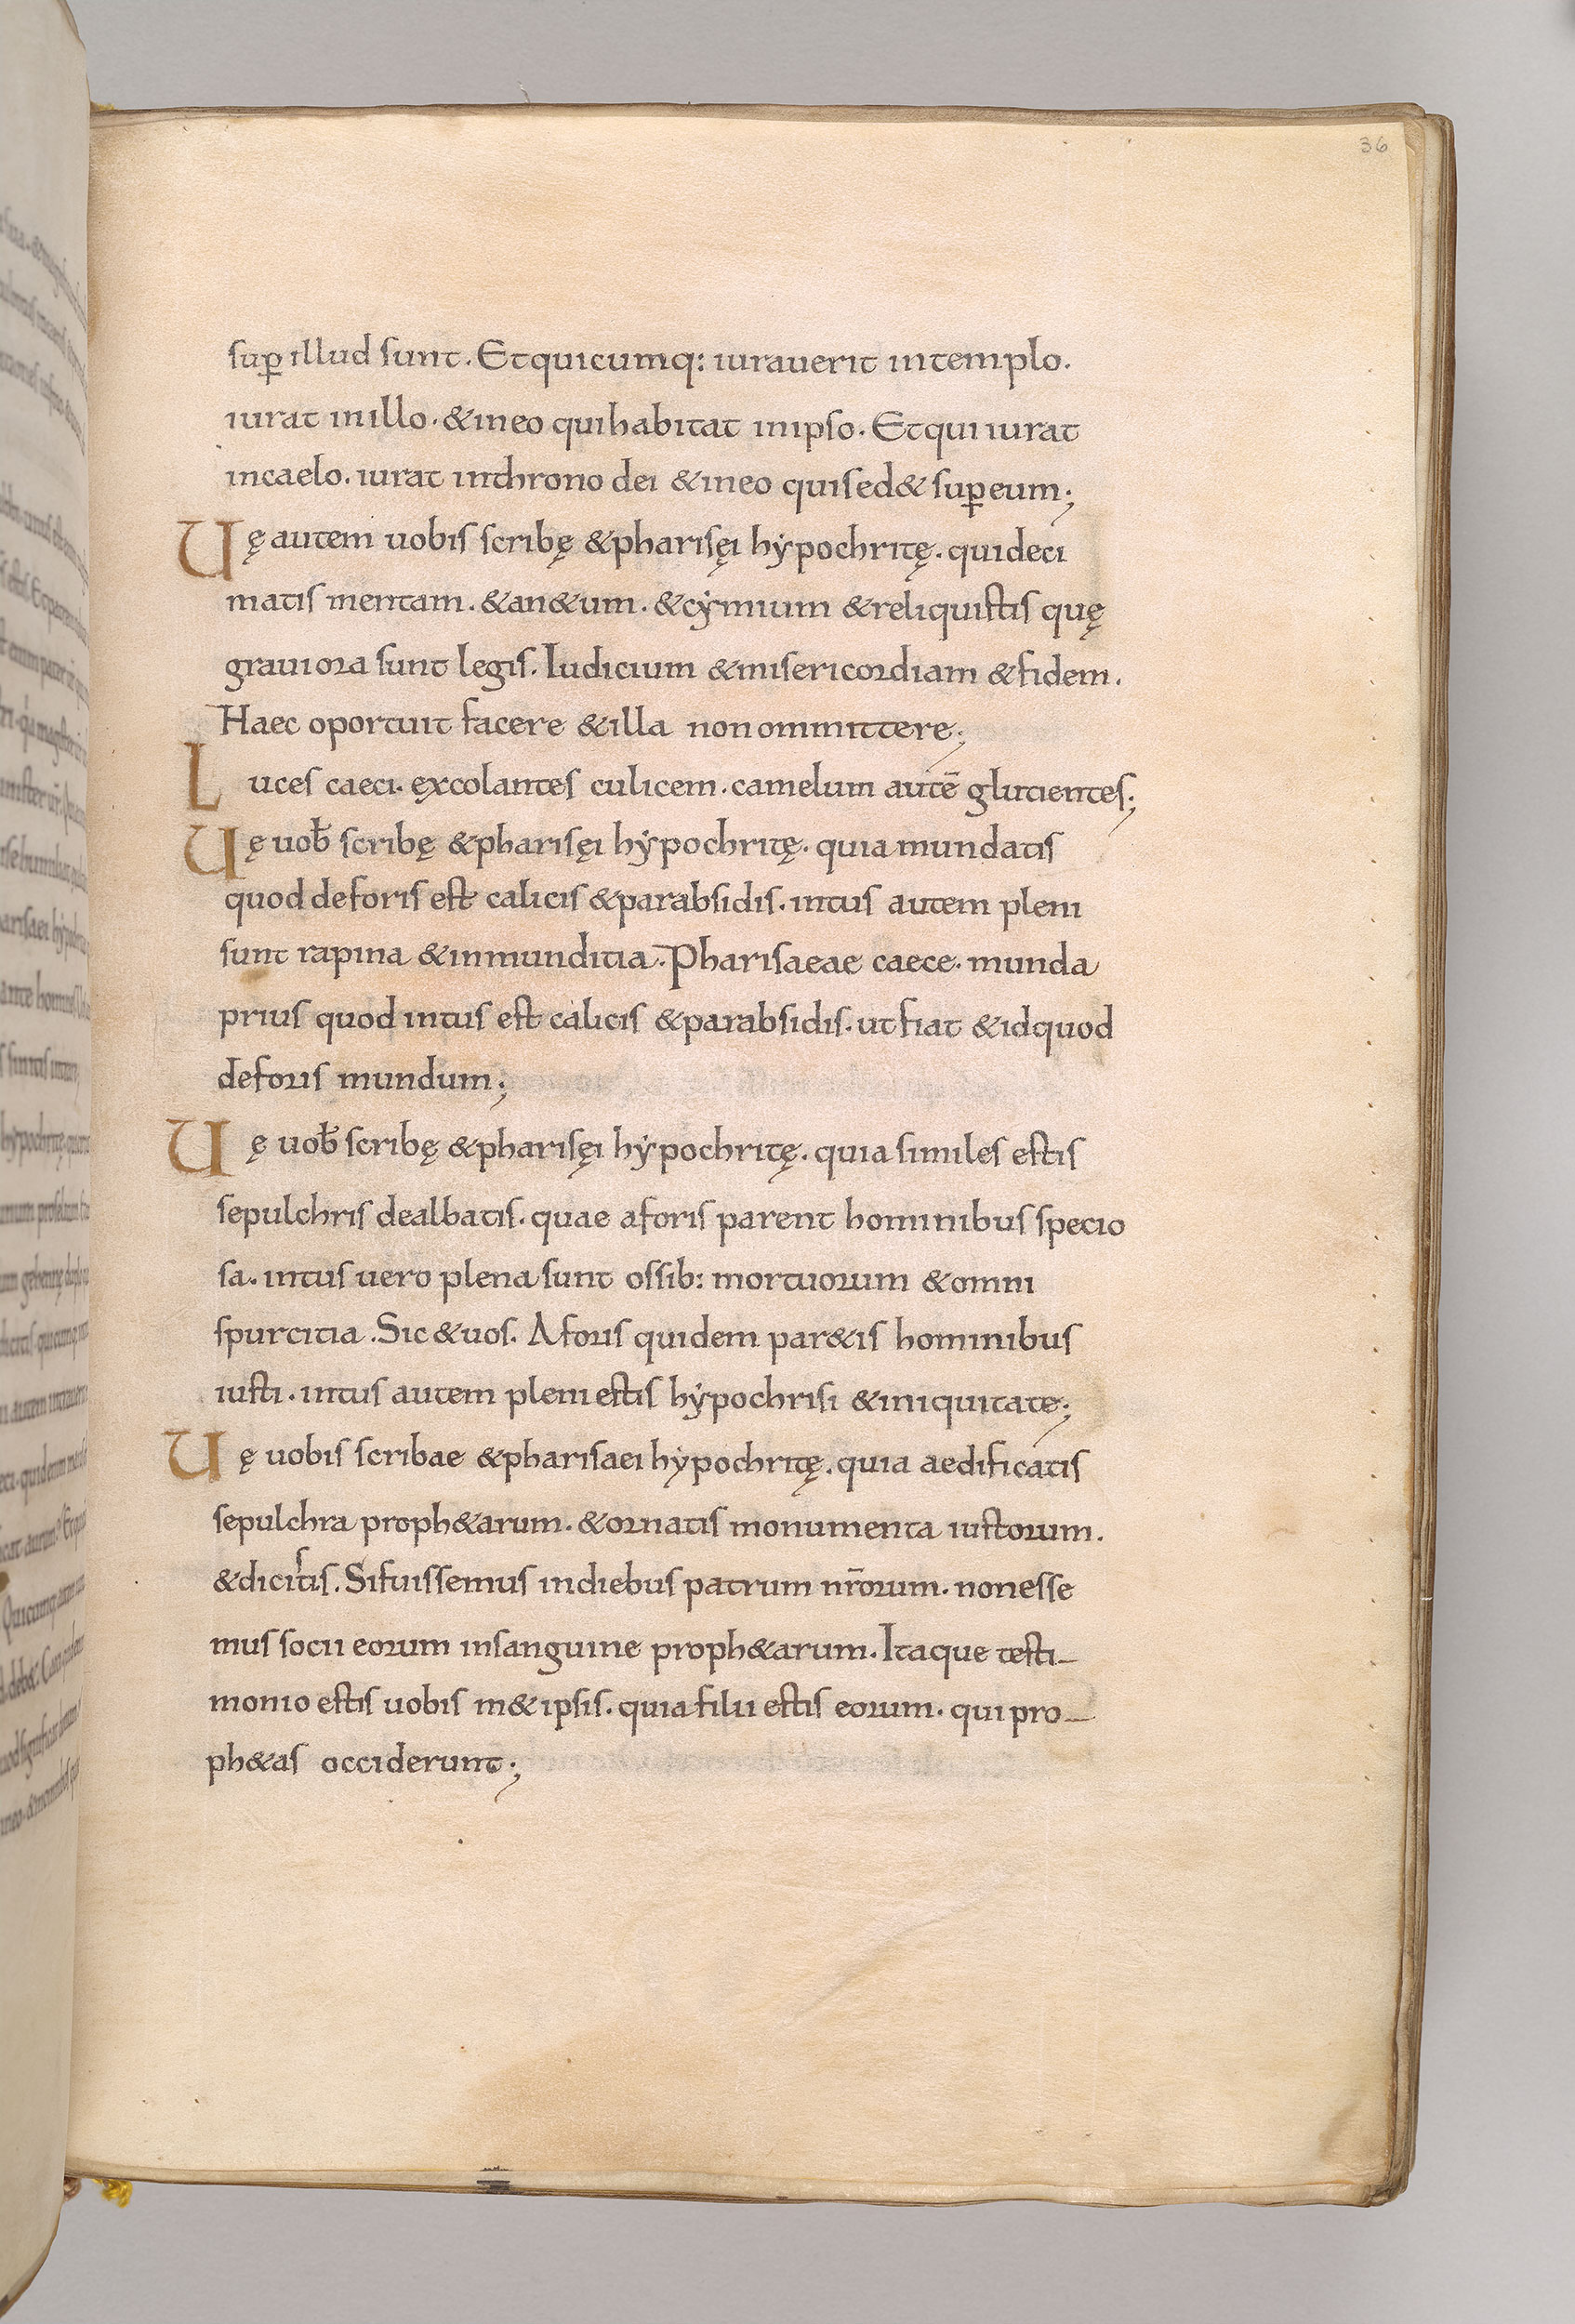 36
sup̲ illud sunt. Et quicumq: iurauerit in templo.
iurat in illo. & in eo qui habitat in ipso. Et qui iurat
in caelo. iurat in throno dei & in eo qui sed& sup̲ eum;
Uę autem uobis scribę & pharisęi hẏpochritę. qui deci
matis mentam. & an&um. & cẏminum & reliquistis quę
grauiora sunt legis. Iudicium & misericordiam & fidem.
Haec oportuit facere & illa non ommittere;
Luces caeci. excolantes culicem. camelum autē glutientes;
Uę uob̄ scribę & pharisęi hẏpochritę. quia mundatis
quod deforis est calicis & parabsidis. intus autem pleni
sunt rapina & inmunditia. Pharisaeae caece. munda
prius quod intus est calicis & parabsidis. ut fiat & id quod
deforis mundum;
Uę uob̄ scribę & pharisęi hẏpochritę. quia similes estis
sepulchris dealbatis. quae aforis parent hominibus specio
sa. intus uero plena sunt ossib: mortuorum & omni
spurcitia. Sic & uos. Aforis quidem par&is hominibus
iusti. intus autem pleni estis hẏpochrisi & iniquitate;
Uę uobis scribae & pharisaei hẏpochritę. quia aedificatis
sepulchra proph&arum. & ornatis monumenta iustorum.
& dicitis. Si fuissemus in diebus patrum nr̄orum. non esse
mus socii eorum in sanguine proph&arum. Itaque testi-
monio estis uobis m& ipsis. quia filii estis eorum. qui pro-
ph&as occiderunt;